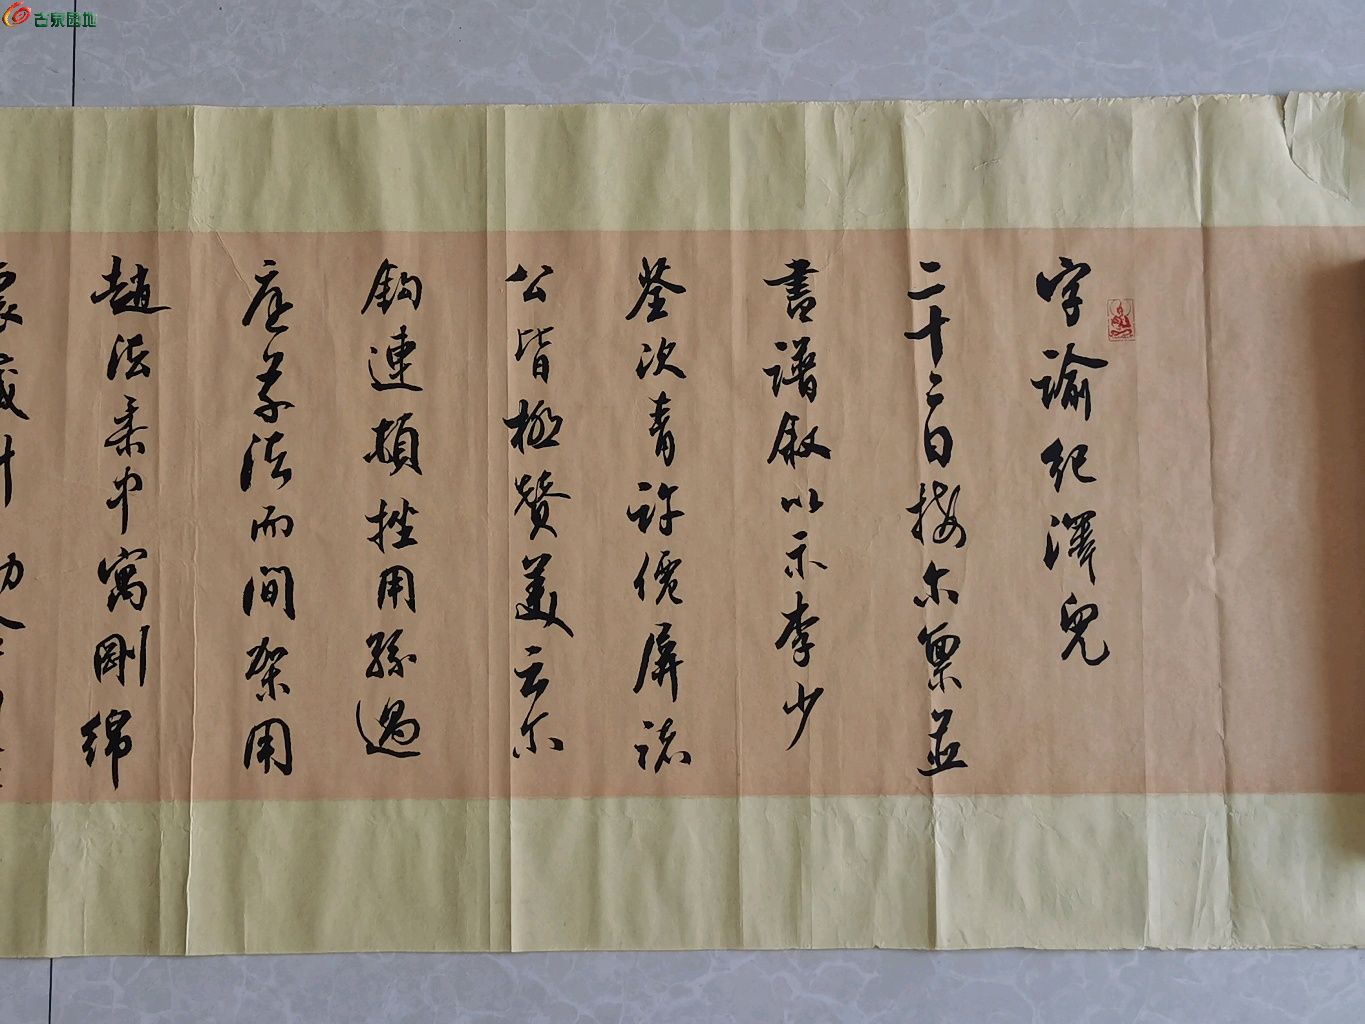 古泉园地
字諭紀澤兒
二十二日接尔稟並
書譜叙以示李少
荃次青許僊屏諸
公皆極贊美云尔
鈎連頓挫用孫過
庭草法而間架用
趙法柔中寓剛綿